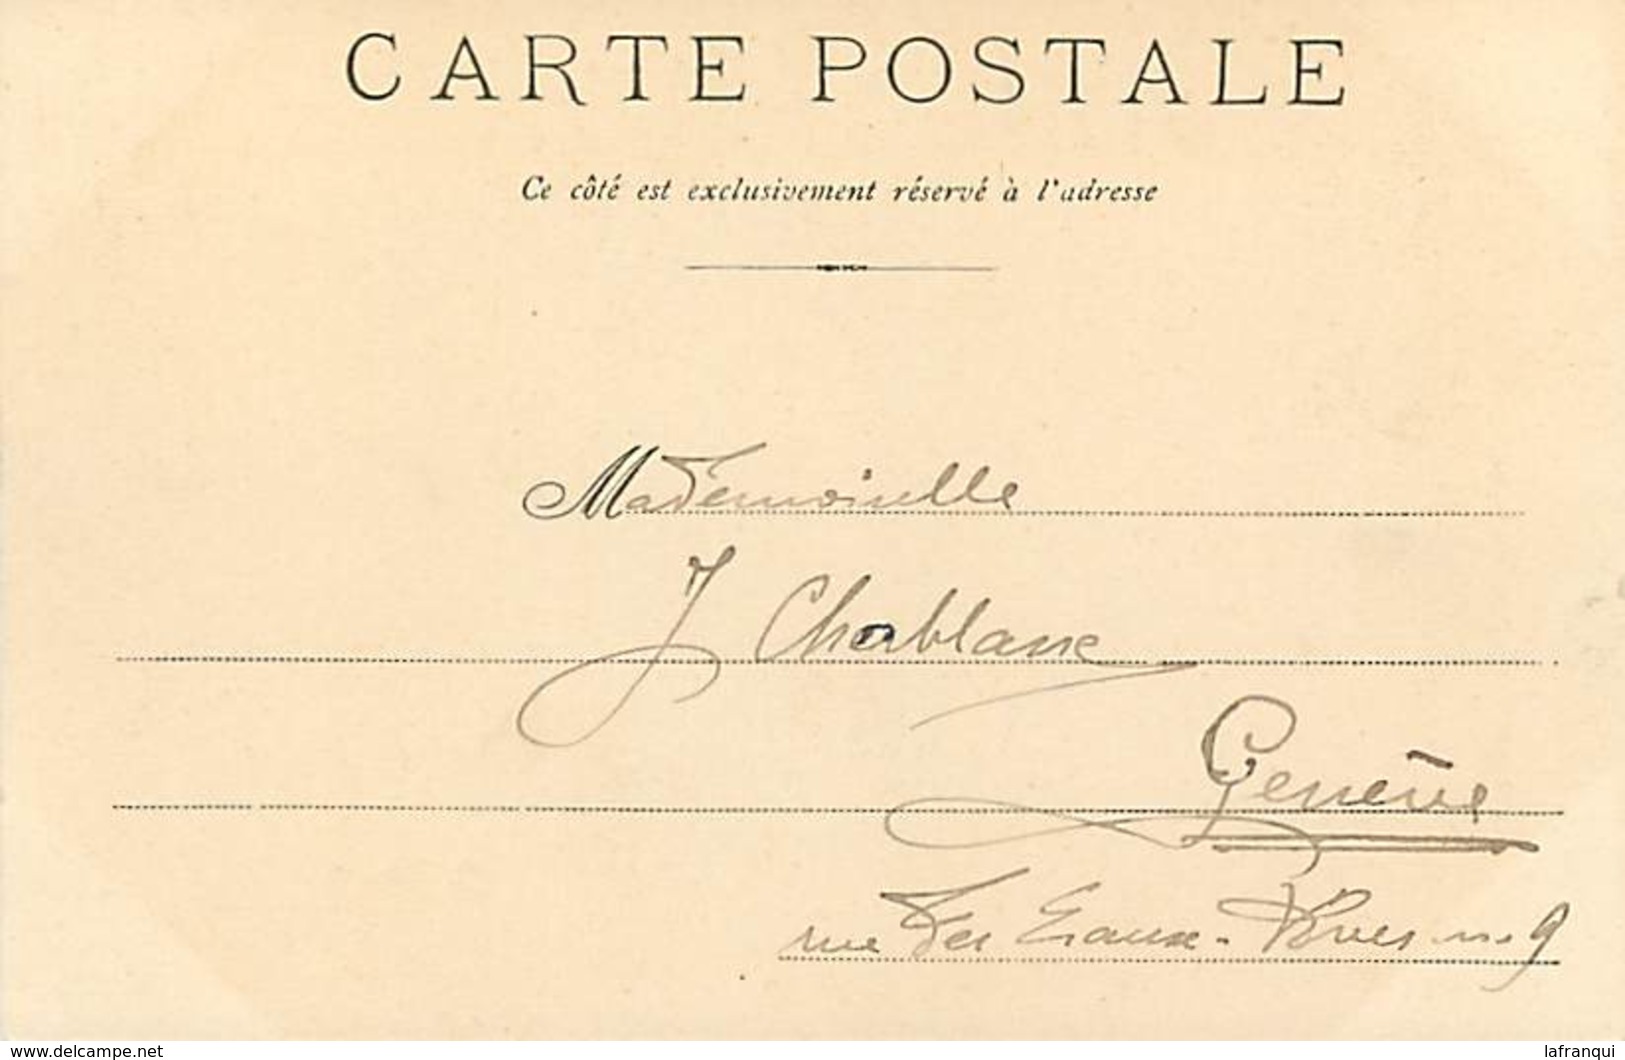 CARTE POSTALE
Ce côté est exclusivement réservé à l'adresse
Mademoiselle
J Chablanc
Genève
rue des Eaux-Vives n. 9
www.delcampe.net
lafranqui